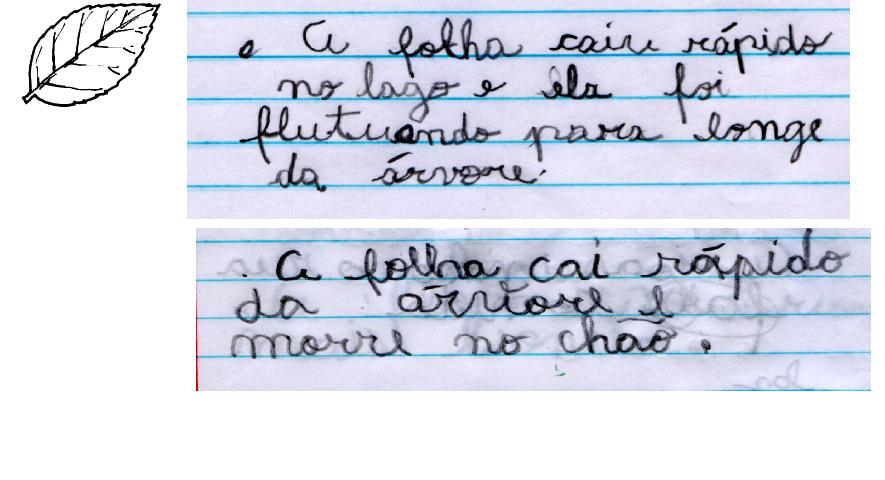 A folha caiu rápido
no lago e ela foi
flutuando para longe
da árvore.
. A folha cai rápido
da árvore e
morre no chão.